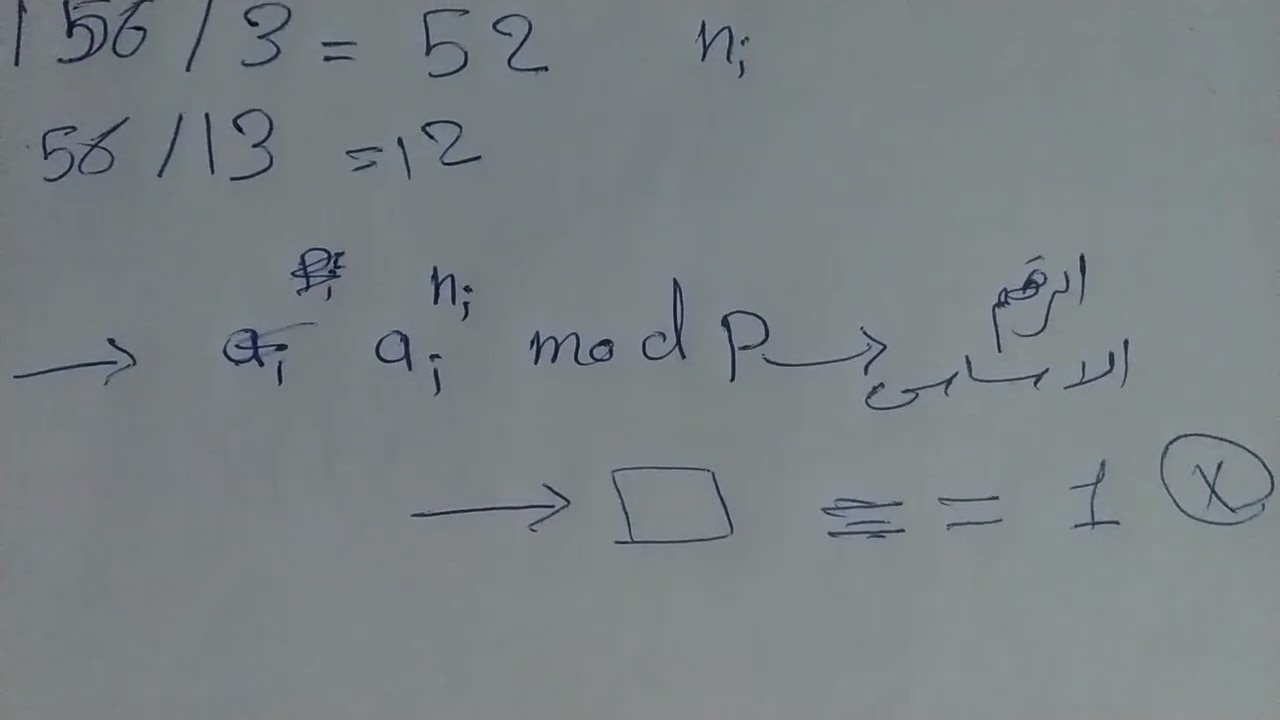 156 / 3 = 52 nᵢ
56 / 13 = 12
→ aᵢ aᵢ^nᵢ mod p → الرقم
الاساسى
→ □ = 1 ⓧ